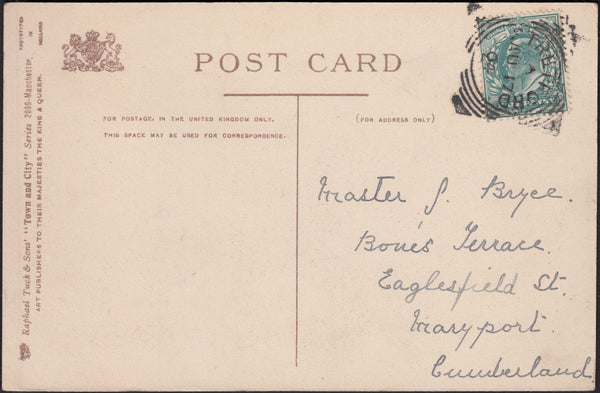 PHOTOTYPED
IN
HOLLAND
Raphael Tuck & Sons' "Town and City" Series 2009-Manchester.
ART PUBLISHERS TO THEIR MAJESTIES THE KING & QUEEN.
POST CARD
FOR POSTAGE IN THE UNITED KINGDOM ONLY,
THIS SPACE MAY BE USED FOR CORRESPONDENCE.
(FOR ADDRESS ONLY)
AU 17
Master J. Bryce.
Bone's Terrace.
Eaglesfield St.
Maryport.
Cumberland